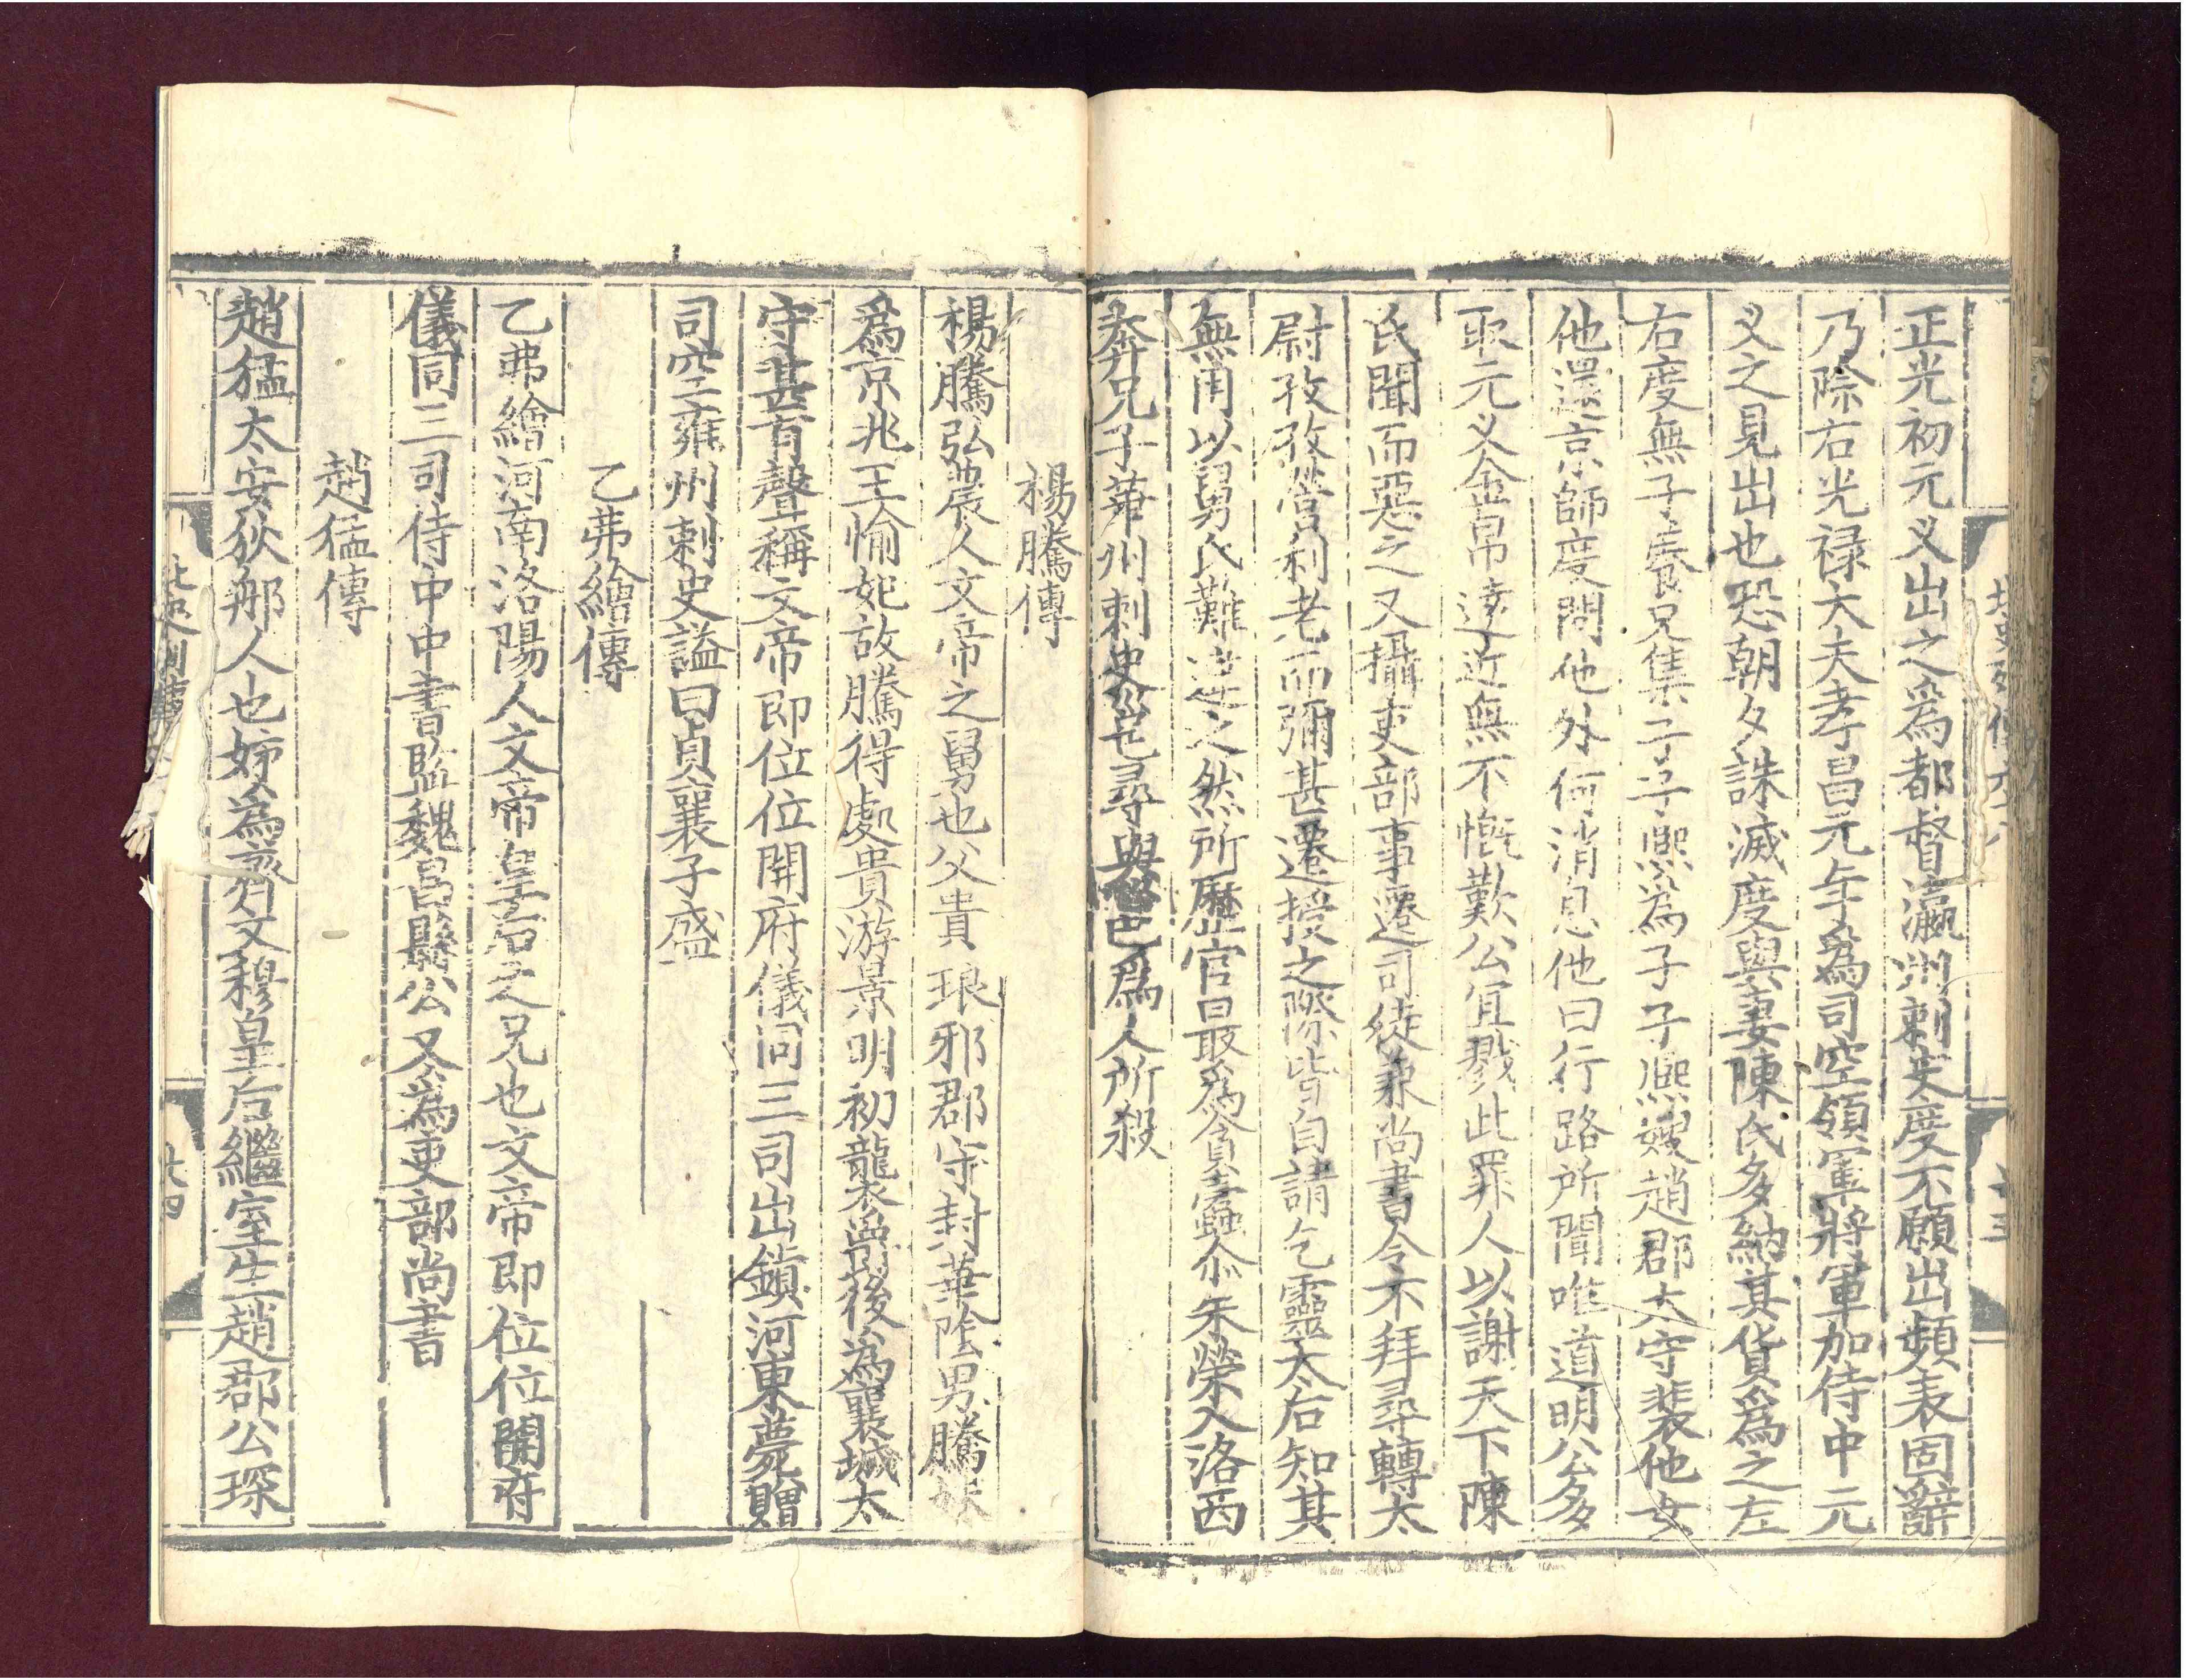 正光初元义出之爲都督瀛州刺史度不願出頻表固辭
乃除右光禄大夫孝昌元年爲司空領軍將軍加侍中元
义之見出也恐朝夕誅滅度與妻陳氏多納其貨爲之左
右度無子養兄集子子熙爲子子熙嫂趙郡太守裴他女
他還京師度問他外何消息他曰行路所聞唯道明公多
取元义金帛遠近無不慨歎公宜戮此罪人以謝天下陳
氏聞而惡之又攝吏部事遷司徒兼尚書令不拜尋轉太
尉孜孜營利老而彌甚遷授之際皆自請乞靈太后知其
無用以舅氏難違之然所歷官曰最爲貪蠹尒朱榮入洛西
奔兄子華州刺史邕尋與邕爲人所殺
楊騰傳
楊騰弘農人文帝之舅也父貴琅邪郡守封華陰男騰妹
爲京兆王愉妃故騰得處貴游景明初襲爵後爲襄城太
守甚有聲稱文帝即位位開府儀同三司出鎮河東薨贈
司空雍州刺史諡曰貞襄子盛
乙弗繪傳
乙弗繪河南洛陽人文帝皇后之兄也文帝即位位開府
儀同三司侍中中書監魏昌縣公又爲吏部尚書
趙猛傳
趙猛太安狄那人也姉爲齊文穆皇后繼室生趙郡公琛
北史列傳
十四